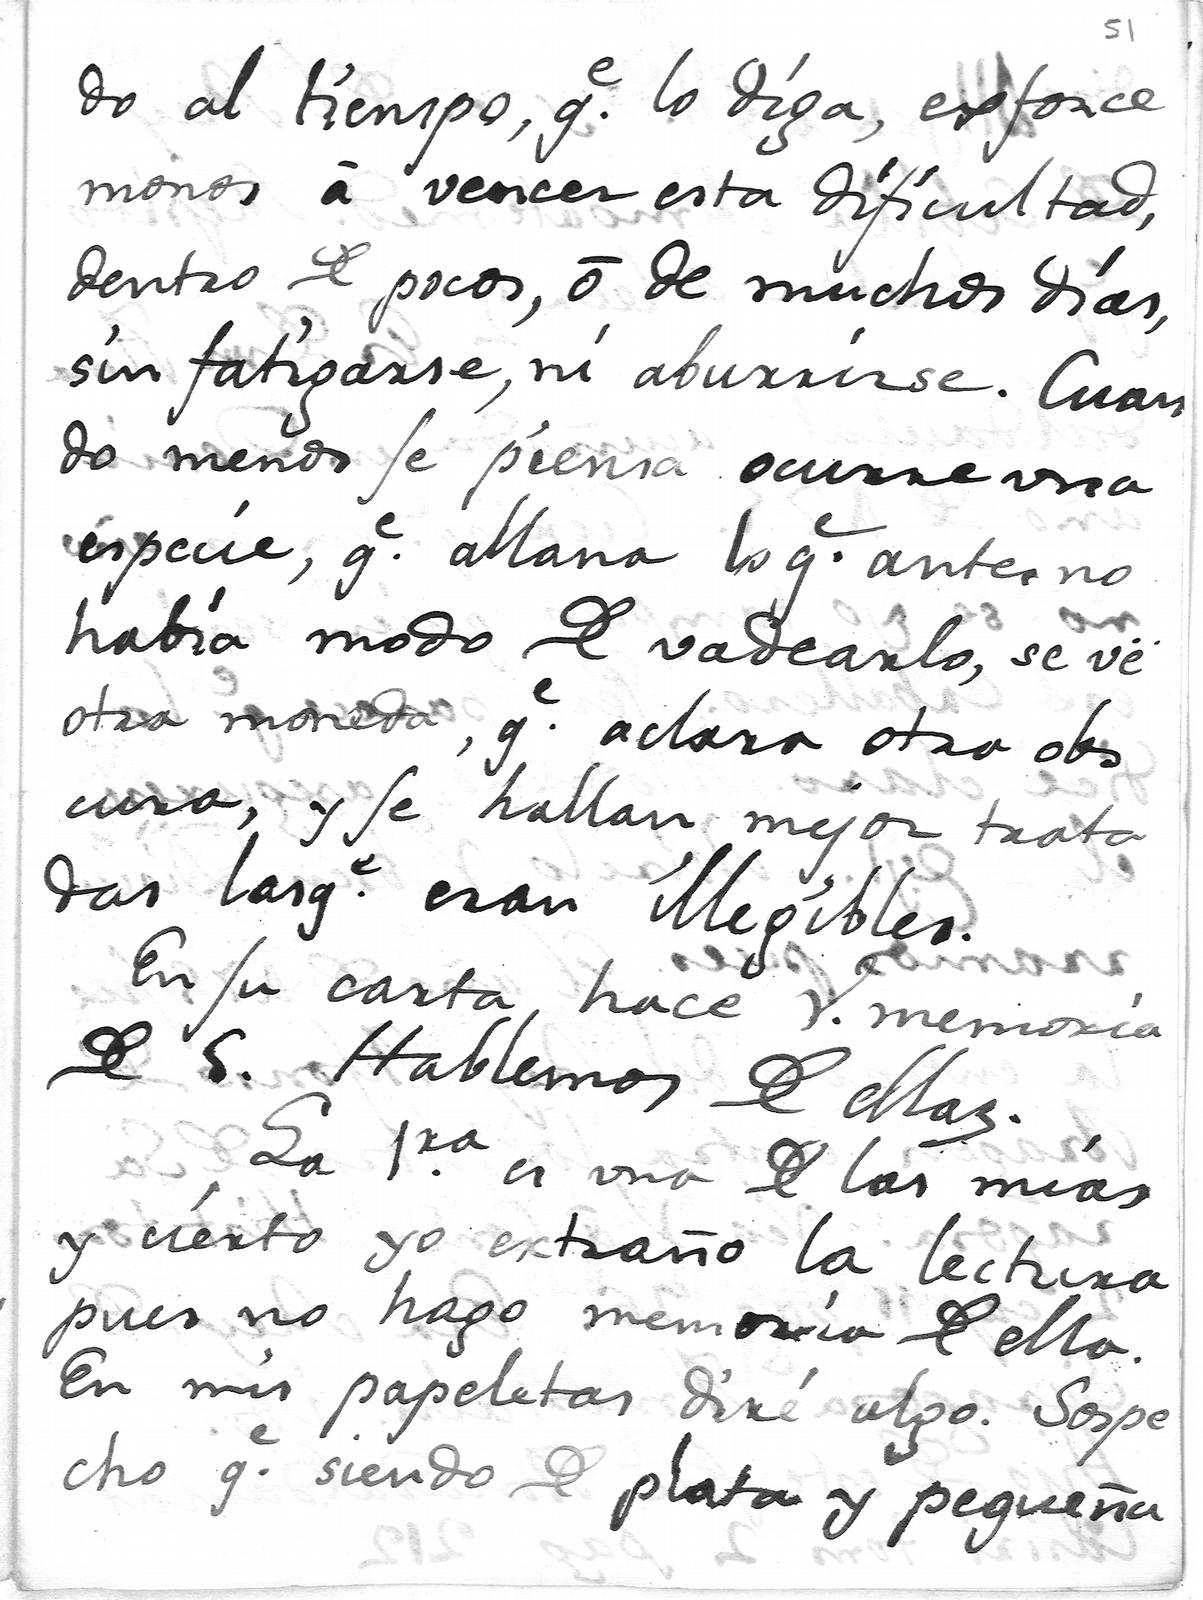 51
do al tiempo, q.e lo diga, esforce
monos à vencer esta dificultad,
dentro de pocos, ò de muchos días,
sin fatigarse, ni aburrirse. Cuan
do menos se piensa ocurre una
especie, q.e allana lo q.e antes no
había modo de vadearlo, se vè
otra moneda, q.e aclara otra obs
cura, y se hallan mejor trata
das las q.e eran illegibles.
En su carta hace V. memoria
de 5. Hablemos de ellas.
La 1.ra es una de las mías
y cierto yo extraño la lectura
pues no hago memoria de ella.
En mis papeletas diré algo. Sospe
cho q.e siendo de plata y pequeña